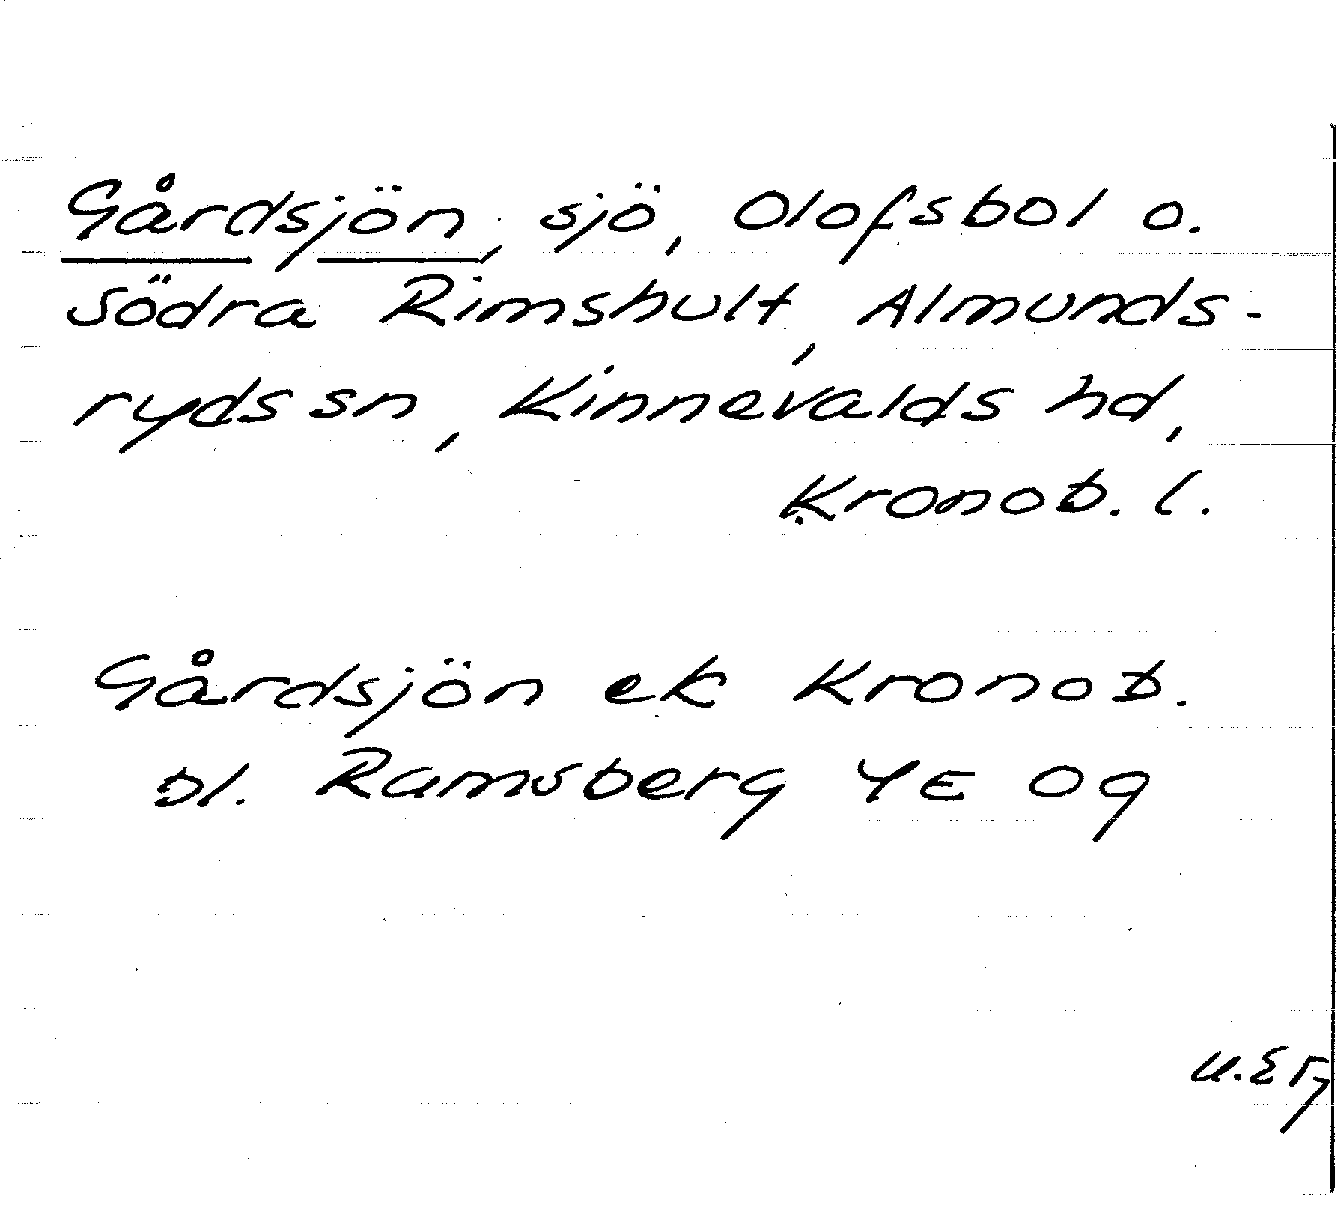 Gårdsjön, sjö, Olofsbol o.
Södra Rimshult, Almunds-
ryds sn, Kinnevalds hd,
Kronob. l.
Gårdsjön ek Kronob.
bl. Ramsberg 4E 0g